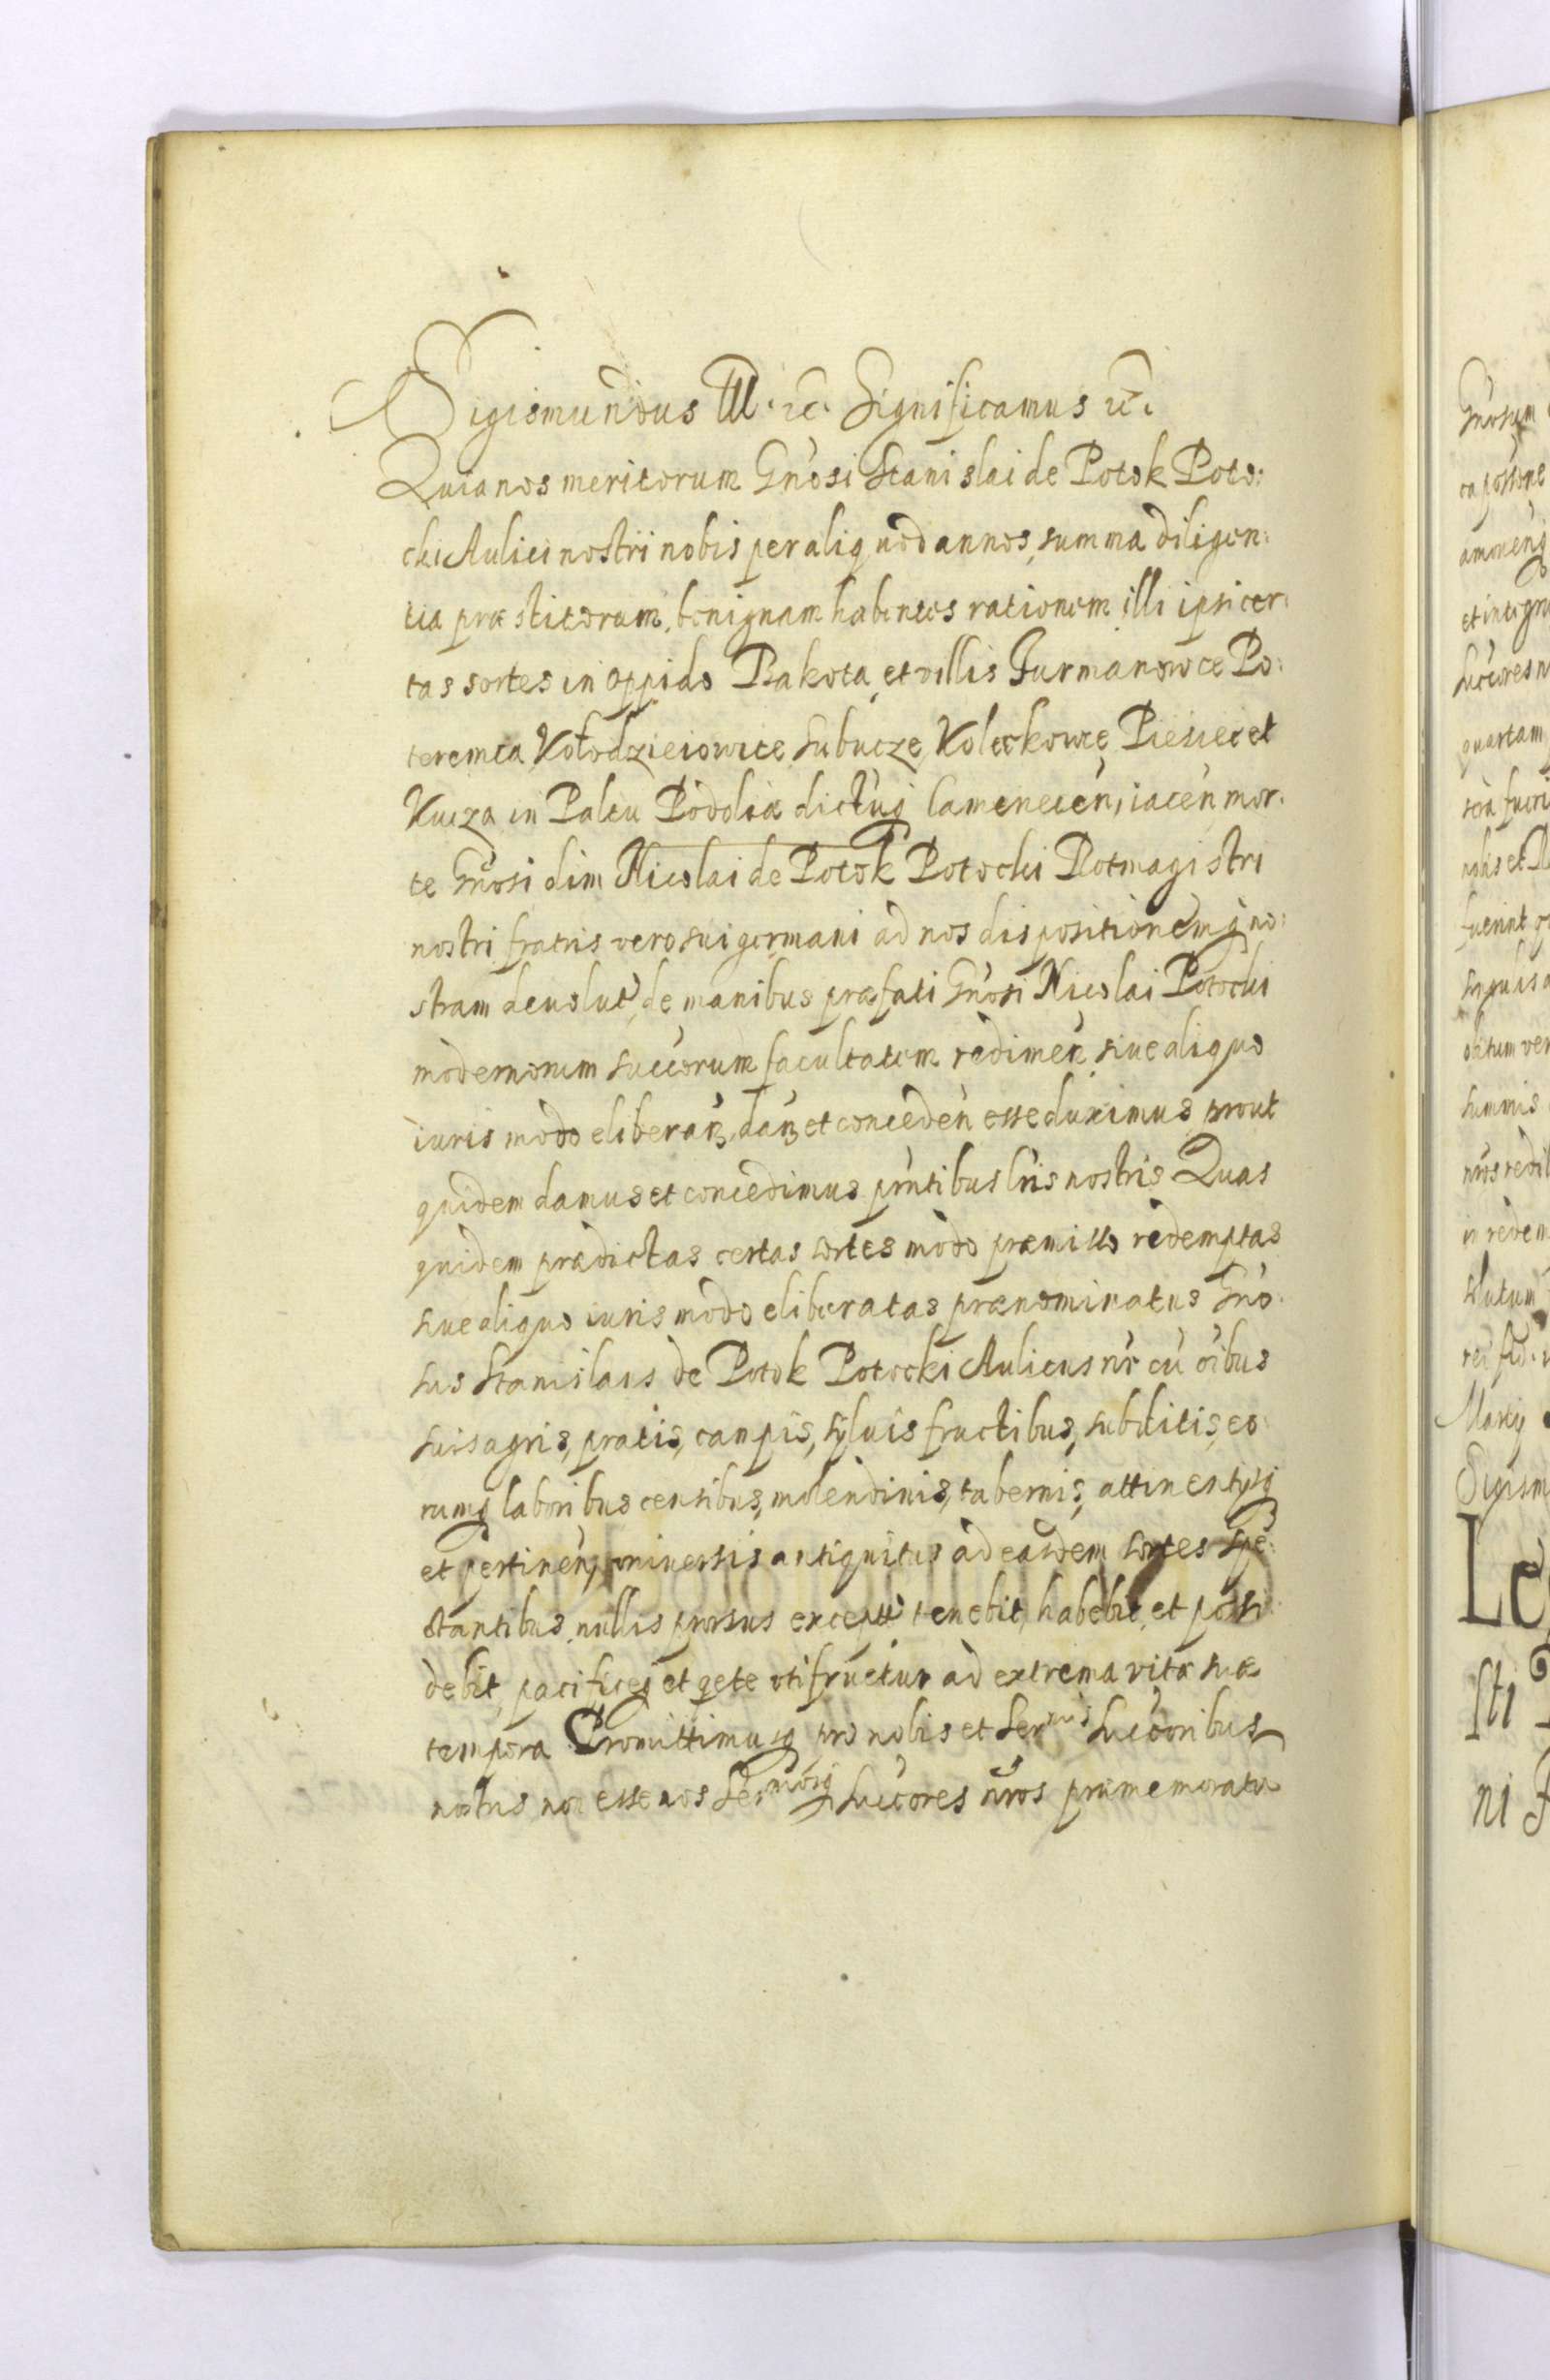 Sigismundus III. etc. Significamus etc.
Quia nos meritorum Gnosi Stanislai de Potok Poto:
cki Aulici nostri nobis per aliquod annos, summa diligen:
tia præstitorum, benignam habentes rationem illi ipsi cer:
tas sortes in oppido Bakota, et villis Furmanowce Po:
teremca, Kołodzieiowice, Subucze, Koleckowce, Piesiec et
Kucza in Paltu Podoliæ dictuq Camenecen, iacen, mor:
te Gnosi olim Nicolai de Potok Potocki Rotmagistri
nostri fratris vero sui germani ad nos dispositionemq no:
stram deuolut, de manibus præfati Gnosi Nicolai Potocki
modernorum succorum facultatem redimen, siue aliquo
iuris modo eliberan, dan et conceden esse duximus, prout
quidem damus et concedimus pntibus lris nostris Quas
quidem prædictas certas sortes modo præmisso redemptas
siue aliquo iuris modo eliberatas prænominatus Gno:
sus Stanislaus de Potok Potocki Aulicus nr cu oibus
suis agris, pratis, campis, syluis fructibus, subditis, eo:
rumq laboribus censibus, molendinis, tabernis, attinentysq
et pertinen, vniuersis antiquitus ad easdem sortes spe:
ctantibus, nullis prorsus except tenebit, habebit, et possi:
debit, pacificeq et qete vtifruetur ad extrema vitæ suæ
tempora Promittimusq pro nobis et Ser succoribus
nostris non esse nos Ser succores nros præmemorato
Gnosum
quartam
Le
sti
ni